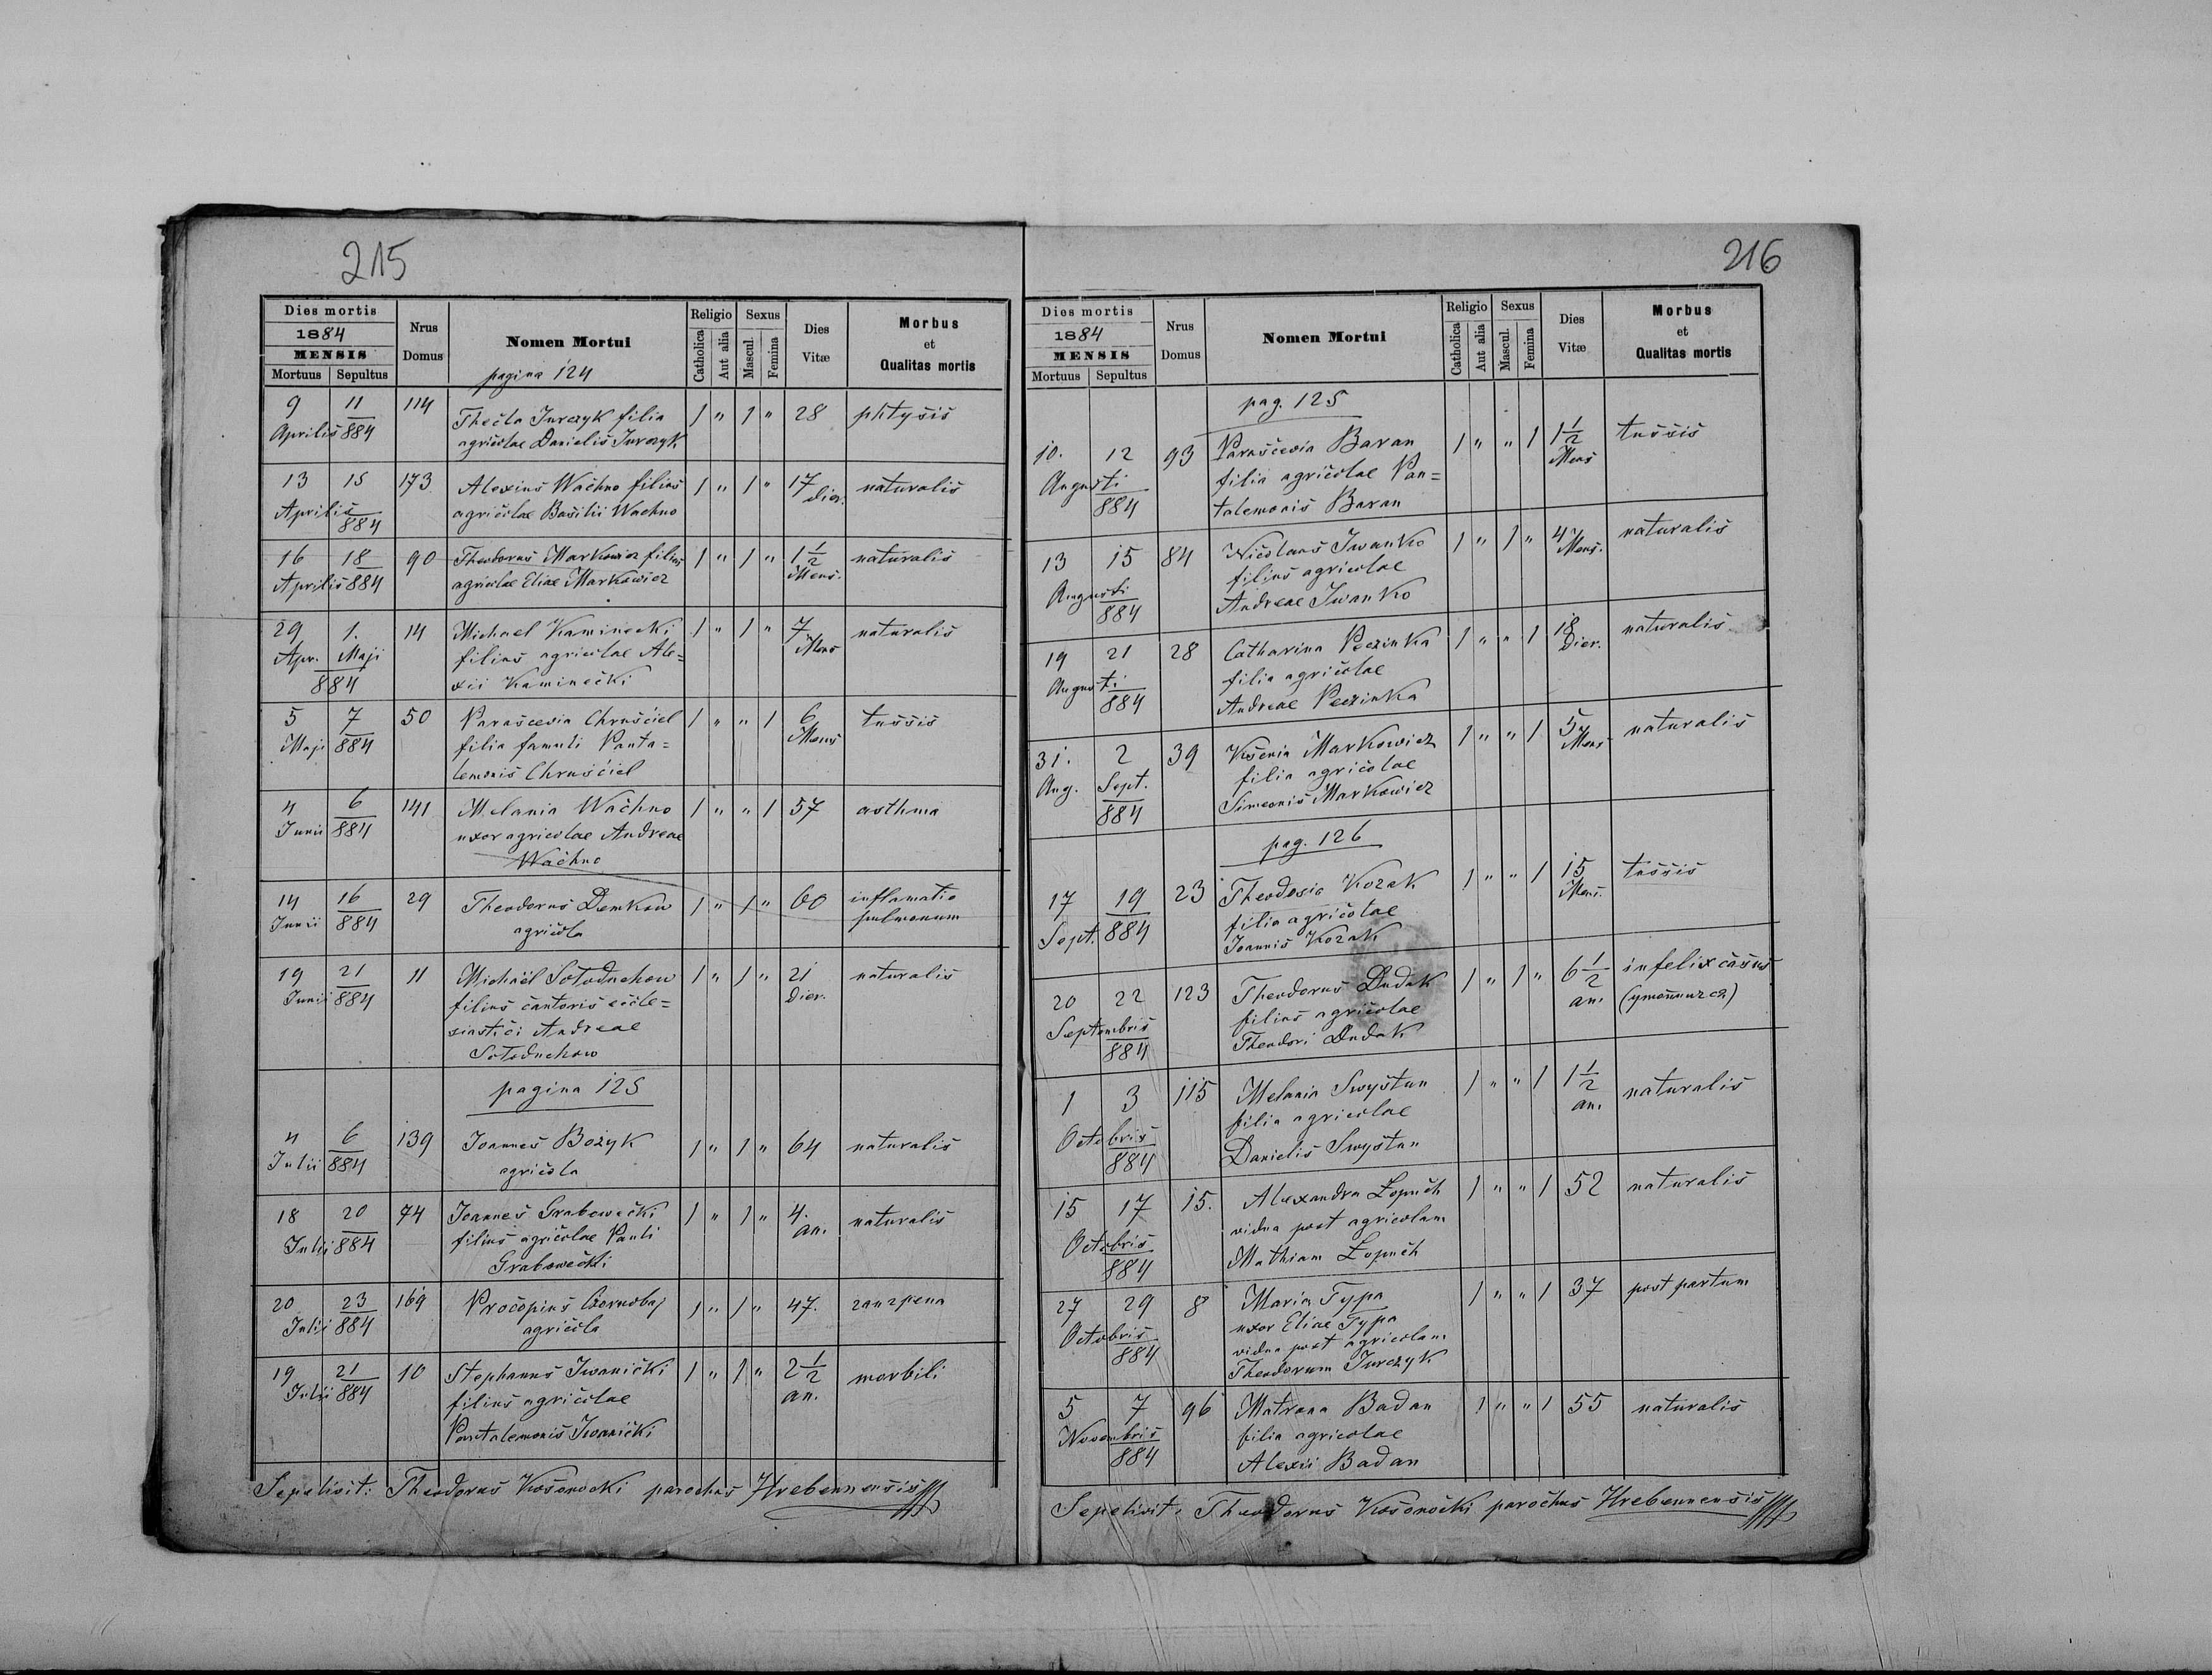 215
Dies mortis
1884
MENSIS
Mortuus Sepultus
Nrus
Domus
Nomen Mortui
pagina 124
Religio
Catholica
Aut alia
Sexus
Mascul.
Femina
Dies
Vitæ
Morbus
et
Qualitas mortis
9 11 114 Thecla Jurczyk filia 1 " 1 " 28 phtysis
Aprilis 884 agricolae Danielis Jurczyk
13 15 173 Alexius Wachno filius 1 " 1 " 17 naturalis
Aprilis 884 agricolae Basilii Wachno dier.
16 18 90 Theodorus Markowicz filius 1 " 1 " 1 1/2 naturalis
Aprilis 884 agricolae Eliae Markowicz Mens.
29 1. 14 Michael Kaminecki 1 " 1 " 7 naturalis
Apr. Maji filius agricolae Ale= Mens
884 xii Kaminecki
5 7 50 Parascevia Chruściel 1 " " 1 6 tussis
Maji 884 filia famuli Panta= Mens
lemonis Chruściel
4 6 141 Melania Wachno 1 " " 1 57 asthma
Junii 884 uxor agricolae Andreae
Wachno
14 16 29 Theodorus Demkow 1 " 1 " 60 inflamatio
Junii 884 agricola pulmonum
19 21 11 Michaël Sołoduchow 1 " 1 " 21 naturalis
Junii 884 filius cantoris eccle= Dier.
siastici Andreae
Sołoduchow
pagina 125
4 6 139 Joannes Bożyk 1 " 1 " 64 naturalis
Julii 884 agricola
18 20 74 Joannes Grabowecki 1 " 1 " 4. naturalis
Julii 884 filius agricolae Pauli an.
Grabowecki
20 23 169 Procopius Czornobaj 1 " 1 " 47.
Julii 884 agricola
19 21 10 Stephanus Iwanicki 1 " 1 " 2 1/2 morbili
Julii 884 filius agricolae an.
Pantalemonis Iwanicki
Sepelivit: Theodorus Kosonocki parochus Hrebennensis
216
Dies mortis
1884
MENSIS
Mortuus Sepultus
Nrus
Domus
Nomen Mortui
Religio
Catholica
Aut alia
Sexus
Mascul.
Femina
Dies
Vitæ
Morbus
et
Qualitas mortis
pag. 125
10. 12 93 Parascevia Baran 1 " " 1 1 1/2 tussis
Augusti 884 filia agricolae Pan= Mens
talemonis Baran
13 15 84 Nicolaus Iwanko 1 " 1 " 4 naturalis
Augusti 884 filius agricolae Mens.
Andreae Iwanko
19 21 28 Catharina Peczinka 1 " " 1 18 naturalis
Augusti 884 filia agricolae Dier.
Andreae Peczinka
31. 2 39 Ksenia Markowicz 1 " " 1 5 naturalis
Aug. Sept. filia agricolae Mens
884 Simeonis Markowicz
pag. 126
17 19 23 Theodosia Kozak 1 " " 1 15 tussis
Sept. 884 filia agricolae Mens.
Joannis Kozak
20 22 123 Theodorus Dudak 1 " 1 " 6 1/2 infelix casus
Septembris 884 filius agricolae an.
Theodori Dudak
1 3 115 Melania Swystun 1 " " 1 1 1/2 naturalis
Octobris 884 filia agricolae an.
Danielis Swystun
15 17 15. Alexandra Łopuch 1 " " 1 52 naturalis
Octobris 884 vidua post agricolam
Mathiam Łopuch
27 29 8 Maria Typa 1 " " 1 37 post partum
Octobris 884 uxor Eliae Typa
vidua post agricolam
Theodorum Jurczyk
5 7 96 Matrona Badan 1 " " 1 55 naturalis
Novembris 884 filia agricolae
Alexii Badan
Sepelivit: Theodorus Kosonocki parochus Hrebennensis